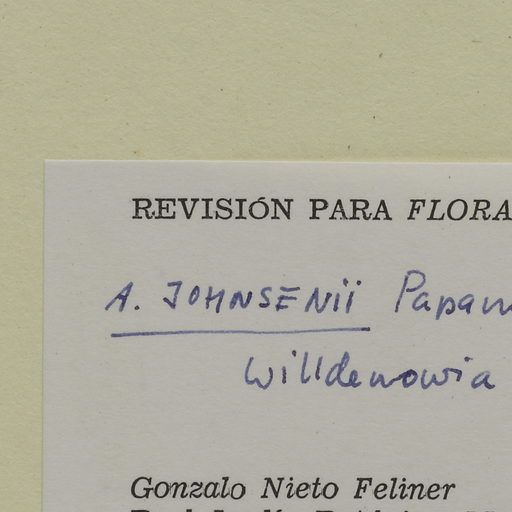 REVISIÓN PARA FLORA
A. JOHNSENii Papan
Willdenowia
Gonzalo Nieto Feliner